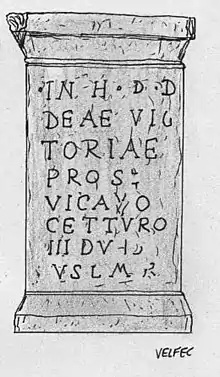 ·IN·H·D·D
DEAE VIC
TORIAE
PROS
VICAVO
CETTVRO
III DV
VSLM
VELFEC